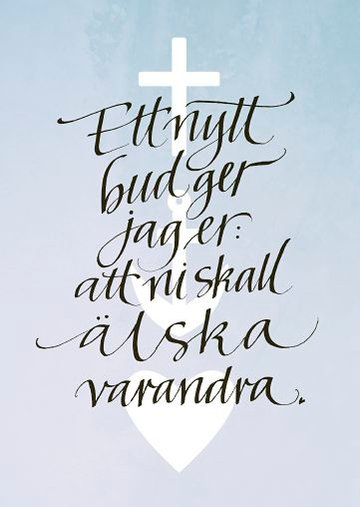 Ett nytt
bud ger
jag er:
att ni skall
älska
varandra.